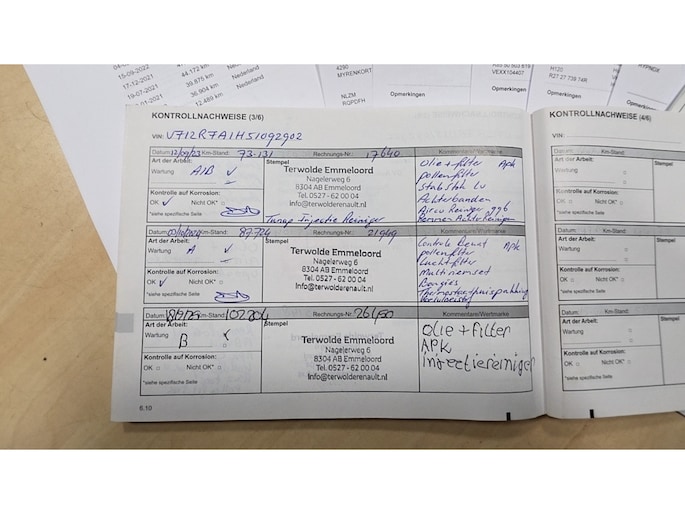 15-09-2022 44.172 km Nederland
17-12-2021 39.875 km Nederland
19-07-2021 36.904 km Nederland
12.489 km
4290
MYRENKORT
NLZM
RGPDFH
Opmerkingen
VEXX104407
Opmerkingen
H120
R27 27 739 74R
Opmerkingen
KONTROLLNACHWEISE (3/6)
VIN:
Datum: 12/09/23 Km-Stand: 73-131 Rechnungs-Nr.: 17640 Kommentare/Wertmarke
Art der Arbeit:
Wartung A/B
Kontrolle auf Korrosion:
OK Nicht OK*
*siehe spezifische Seite
Stempel
Terwolde Emmeloord
Nagelerweg 6
8304 AB Emmeloord
Tel. 0527 - 62 00 04
info@terwolderenault.nl
Tunap Injectie Reiniger
Olie + filter APK
pollenfilter
Achterbanden
Datum: Km-Stand: 87724 Rechnungs-Nr.: 21949 Kommentare/Wertmarke
Art der Arbeit:
Wartung A
Kontrolle auf Korrosion:
OK Nicht OK*
*siehe spezifische Seite
Stempel
Terwolde Emmeloord
Nagelerweg 6
8304 AB Emmeloord
Tel. 0527 - 62 00 04
info@terwolderenault.nl
Controle Beurt APK
pollenfilter
Luchtfilter
Multiriemset
Bougies
Datum: Km-Stand: 102204 Rechnungs-Nr.: Kommentare/Wertmarke
Art der Arbeit:
Wartung B
Kontrolle auf Korrosion:
OK Nicht OK*
*siehe spezifische Seite
Stempel
Terwolde Emmeloord
Nagelerweg 6
8304 AB Emmeloord
Tel. 0527 - 62 00 04
info@terwolderenault.nl
Olie + filter
APK
Injectiereiniger
6.10
KONTROLLNACHWEISE (4/6)
VIN:
Datum: Km-Stand:
Art der Arbeit:
Wartung
Kontrolle auf Korrosion:
OK Nicht OK*
*siehe spezifische Seite
Stempel
Datum: Km-Stand:
Art der Arbeit:
Wartung
Kontrolle auf Korrosion:
OK Nicht OK*
*siehe spezifische Seite
Stempel
Datum: Km-Stand:
Art der Arbeit:
Wartung
Kontrolle auf Korrosion:
OK Nicht OK*
*siehe spezifische Seite
Stempel